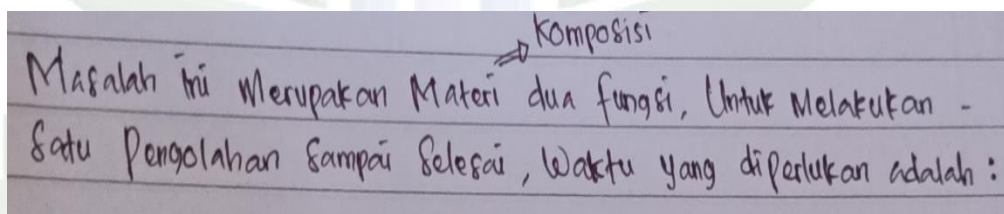 Komposisi
Masalah ini Merupakan Materi dua fungsi, Untuk Melakukan -
Satu Pengolahan Sampai Selesai, Waktu yang diperlukan adalah :